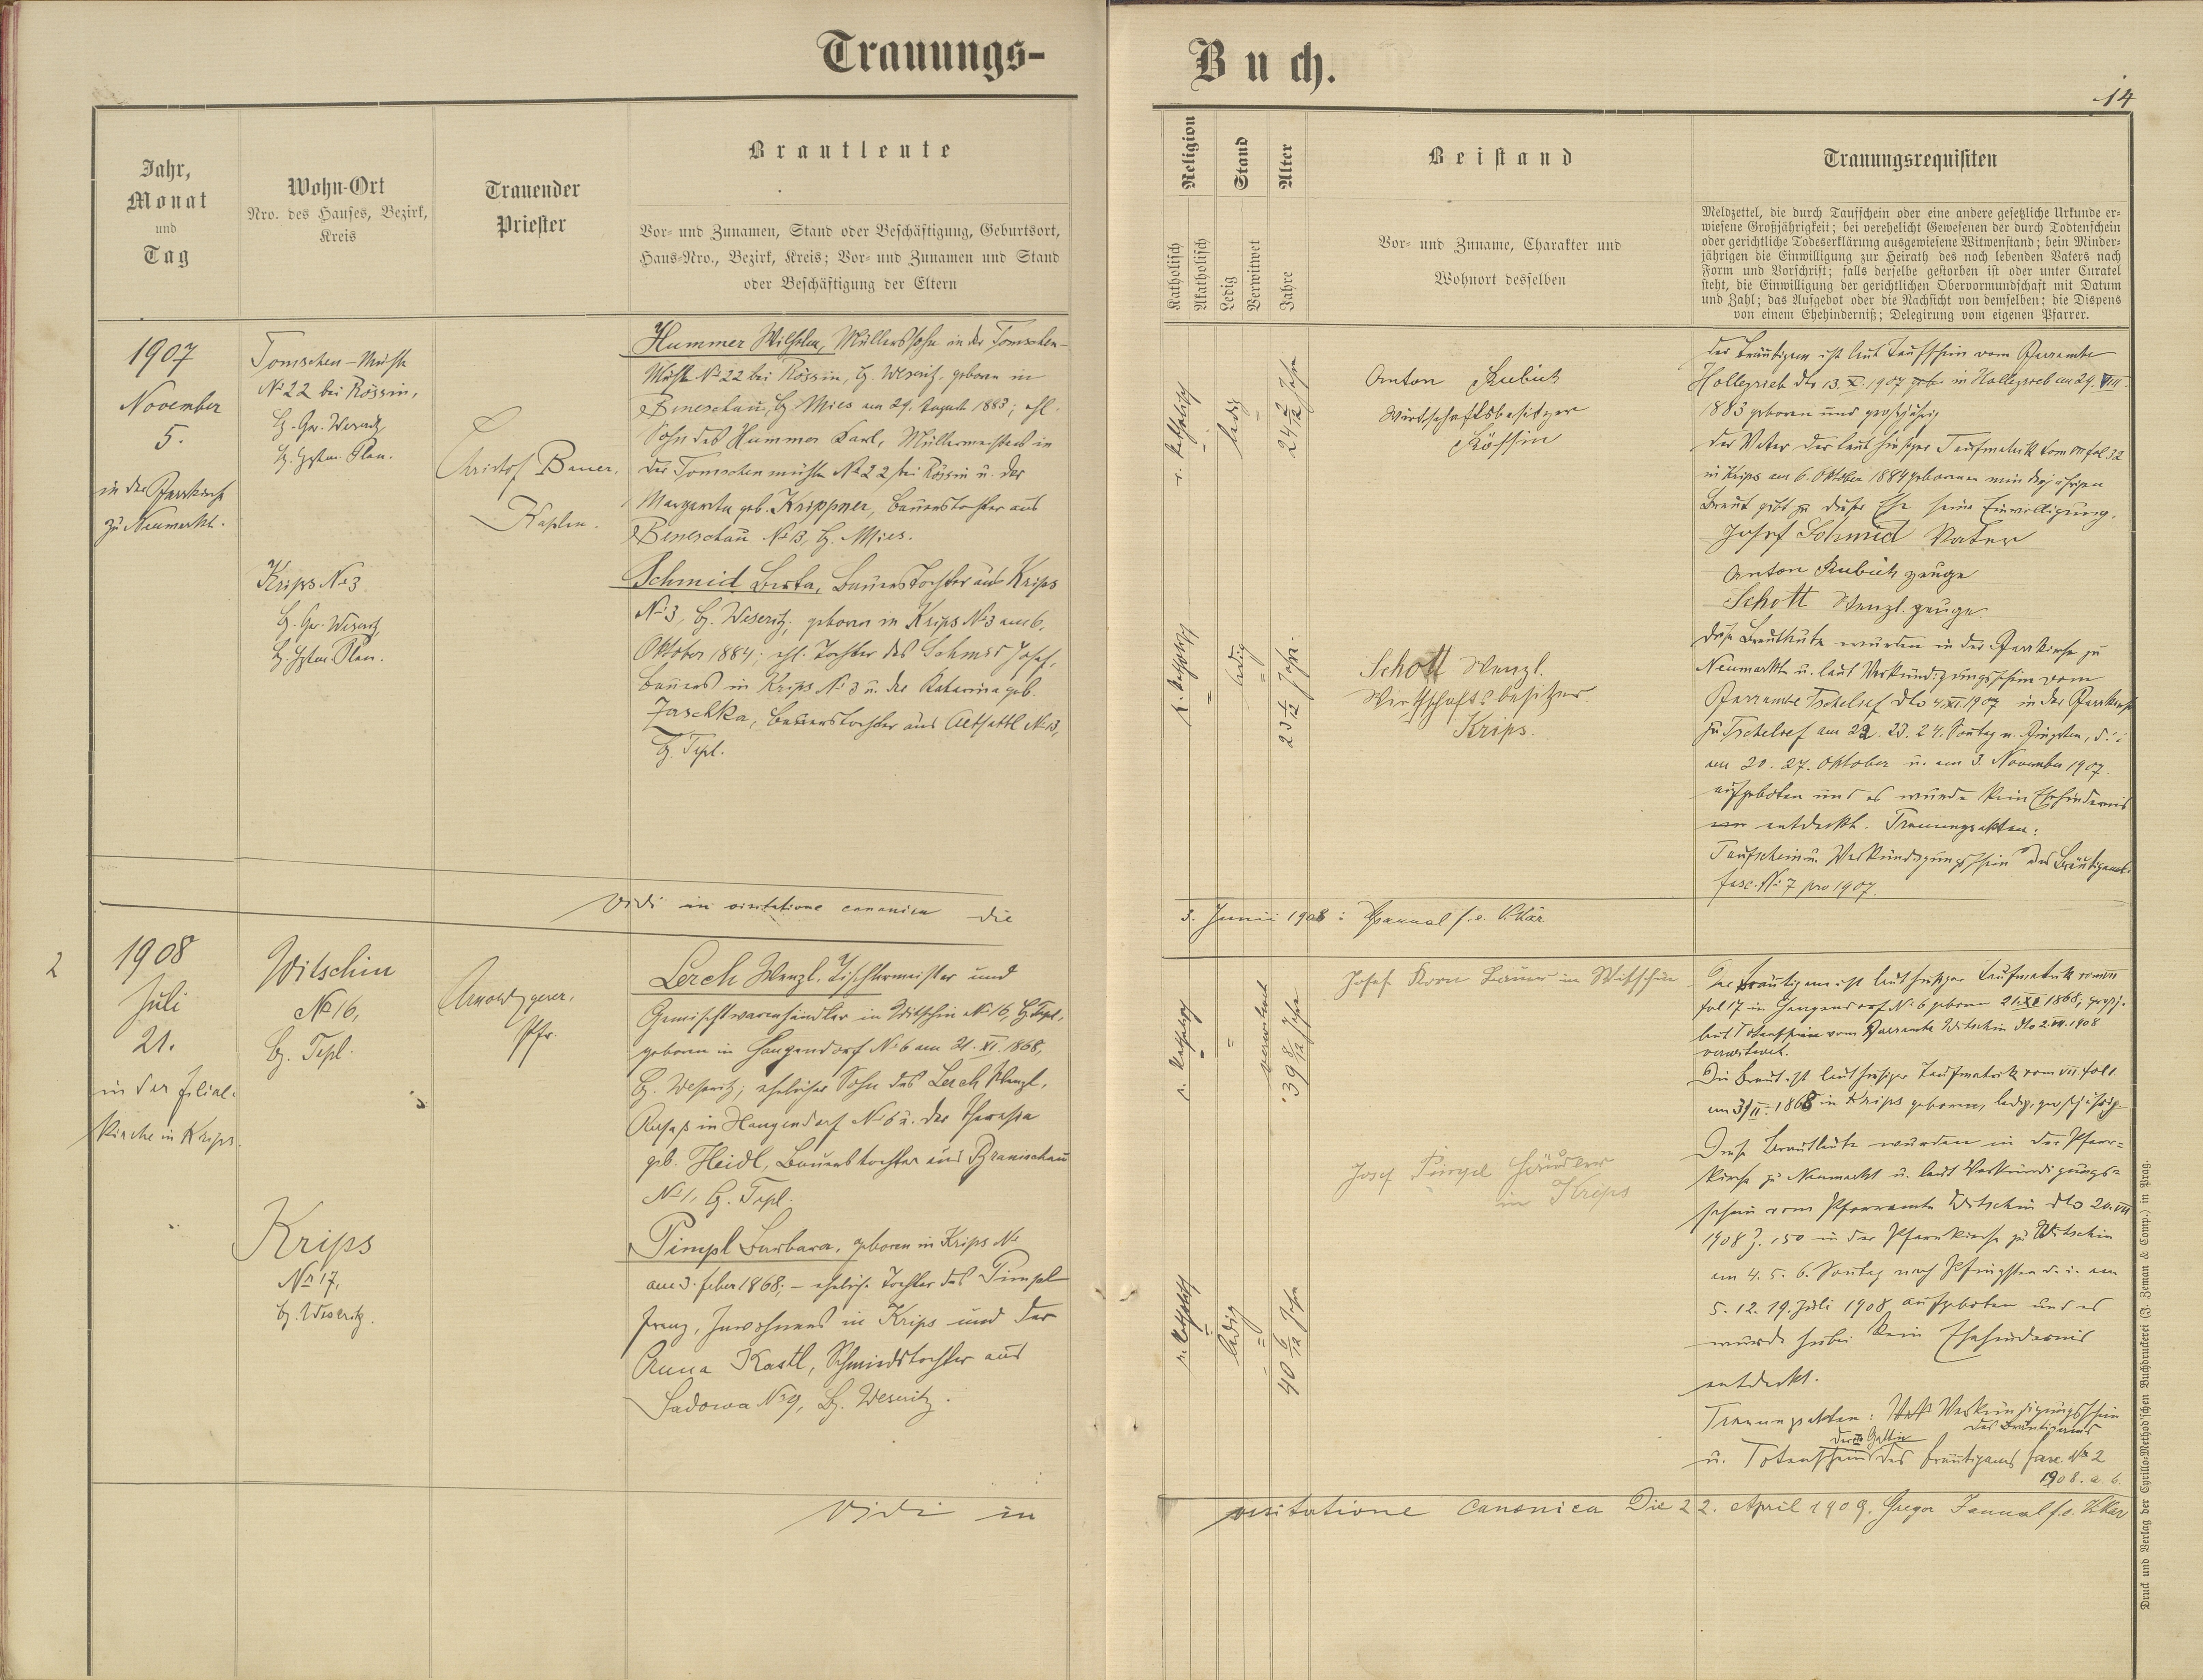 Trauungs-
Buch.
14
Jahr,
Monat
und
Tag
Wohn-Ort
Nro. des Hauses, Bezirk,
Kreis
Trauender
Priester
Brautleute
Vor- und Zunamen, Stand oder Beschäftigung, Geburtsort,
Haus-Nro., Bezirk, Kreis; Vor- und Zunamen und Stand
oder Beschäftigung der Eltern
Religion
Katholisch
Akatholisch
Stand
Ledig
Verwitwet
Alter
Jahre
Beistand
Vor- und Zuname, Charakter und
Wohnort desselben
Trauungsrequisiten
Meldzettel, die durch Taufschein oder eine andere gesetzliche Urkunde er-
wiesene Großjährigkeit; bei verehelicht Gewesenen der durch Todtenschein
oder gerichtliche Todeserklärung ausgewiesene Witwenstand; bein Minder-
jährigen die Einwilligung zur Heirath des noch lebenden Vaters nach
Form und Vorschrift; falls derselbe gestorben ist oder unter Curatel
steht, die Einwilligung der gerichtlichen Obervormundschaft mit Datum
und Zahl; das Aufgebot oder die Nachsicht von demselben; die Dispens
von einem Ehehinderniß; Delegirung vom eigenen Pfarrer.
1907
November
5.
in der Pfarrkirche
zu Neumarkt.
Tomschen-Mühle
No 22 bei Rössin,
Bz. Ger. Weseritz
Bz. Hptm. Plan.
Krips No 3
Bz. Ger. Weseritz
Bz. Hptm. Plan.
Christof Bauer,
Kaplan.
Hummer Wilhelm, Müllerssohn in der Tomschen-
Mühle No 22 bei Rössin, Bz. Weseritz, geboren in
Beneschau, Bz Mies am 29. August 1883; ehl.
Sohn des Hummer Karl, Müllermeisters in
der Tomschenmühle No 22 bei Rössin u. der
Margareta geb. Krippner, Bauerstochter aus
Beneschau No 13, Bz. Mies.
Schmid Berta, Bauerstochter aus Krips
No 3, Bz. Weseritz, geboren in Krips No 3 am 6.
Oktober 1884; ehl. Tochter des Schmid Josef,
Bauers in Krips No 3 u. der Katharina geb.
Jaschka, Bauerstochter aus Altsattl No 13,
Bz. Tepl.
r. katholisch
ledig
24 2/12 Jahr
r. katholisch
ledig
23 1/12 Jahr.
Anton Kubick
Wirtschaftsbesitzer
Rössin
Schott Wenzl.
Wirthschaftsbesitzer
Krips.
Der Bräutigam ist laut Taufschein vom Pfarramte
Holleyrieb dto 13. X. 1907 in Holleyrieb am 29. VIII.
1883 geboren und großjährig
Der Vater der laut hiesiger Taufmatrik tom VII fol 32
in Krips am 6. Oktober 1884 geborenen minderjährigen
Braut gibt zu dieser Ehe seine Einwilligung.
Josef Schmid Vater
Anton Kubick zeuge
Schott Wenzl. zeuge.
Diese Brautleute wurden in der Pfarrkirche zu
Neumarkt u. laut Verkündigungsschein vom
Pfarramte Tschelief dto 4. XI. 1907 in der Pfarrkirche
zu Tschelief am 22. 23. 24. Sontag n. Pfingsten, d. i
am 20. 27. Oktober u. am 3. November 1907.
aufgeboten und es wurde kein Ehehindernis
entdeckt. Trauungsakten:
Taufschein u. Verkündigungsschein des Bräutigams.
fasc. No 7 pro 1907.
Vidi in visitatione canonica die
3. Junii 1908: f. e. Vikär
2
1908
Juli
21.
in der Filial-
kirche in Krips.
Witschin
No 16,
Bz. Tepl.
Krips
No 17,
Bz. Weseritz.
Pfr.
Lerch Wenzl. Tischlermeister und
Gemischtwarenhändler in Witschin No 16, Bz Tepl,
geboren in Hangendorf No 6 am 21. XI. 1868,
Bz. Weseritz; ehelicher Sohn des Lerch Wenzl,
in Hangendorf No 6 u. der Theresia
geb. Heidl, Bauerstochter aus Branischau
No 1, Bz. Tepl.
Pimpl Barbara, geboren in Krips No
am 3. feber 1868; - eheliche Tochter des Pimpl
Franz, Inwohners in Krips und der
Anna Kastl, Schmiedstochter aus
Sadowa No 9, Bz. Weseritz.
r. katholisch
verwitwet
39 8/12 Jahre
r. katholisch
ledig
40 6/12 Jahr
Josef Korn Bauer in Witschin
Josef Pimpl Häusler
in Krips
Der Bräutigam ist laut hiesiger Taufmatrik tom VII
fol 17 in Hangendorf No 6 geboren 21. XI 1868, großj.
laut Totenschein vom Pfarramte Witschin dto 2. VII. 1908
verwitwet.
Die Braut ist laut hiesiger Taufmatrik tom VII. fol 1
am 3/II. 1868 in Krips geboren, ledig, großjährig.
Diese Brautleute wurden in der Pfarr-
kirche zu Neumarkt u. laut Verkündigungs-
schein vom Pfarramte Witschin dto 20. VII
1908 Z. 150 in der Pfarrkirche zu Witschin
am 4. 5. 6. Sontag nach Pfingsten d. i. am
5. 12. 19. Juli 1908 aufgeboten und es
wurde hiebei kein Ehehindernis
entdeckt.
Trauungsakten: Verkündigungsschein
des Bräutigams
der Gattin
u. Totenschein des Bräutigams fasc. No 2
1908. a. b.
Vidi in visitatione canonica Die 22. April 1909. Gregor f. e. Vikar
Druck und Verlag der Cyrillo-Method'schen Buchdruckerei (J. Zeman & Comp.) in Prag.